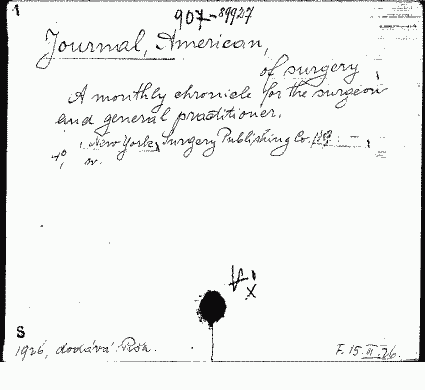 1
907-89927
Journal, American,
of surgery
A monthly chronicle for the surgeon
and general practitioner.
New York, Surgery Publishing Co.
4°, v.
V.
x
S
1926, dodává Pták.
F. 15.III.26.